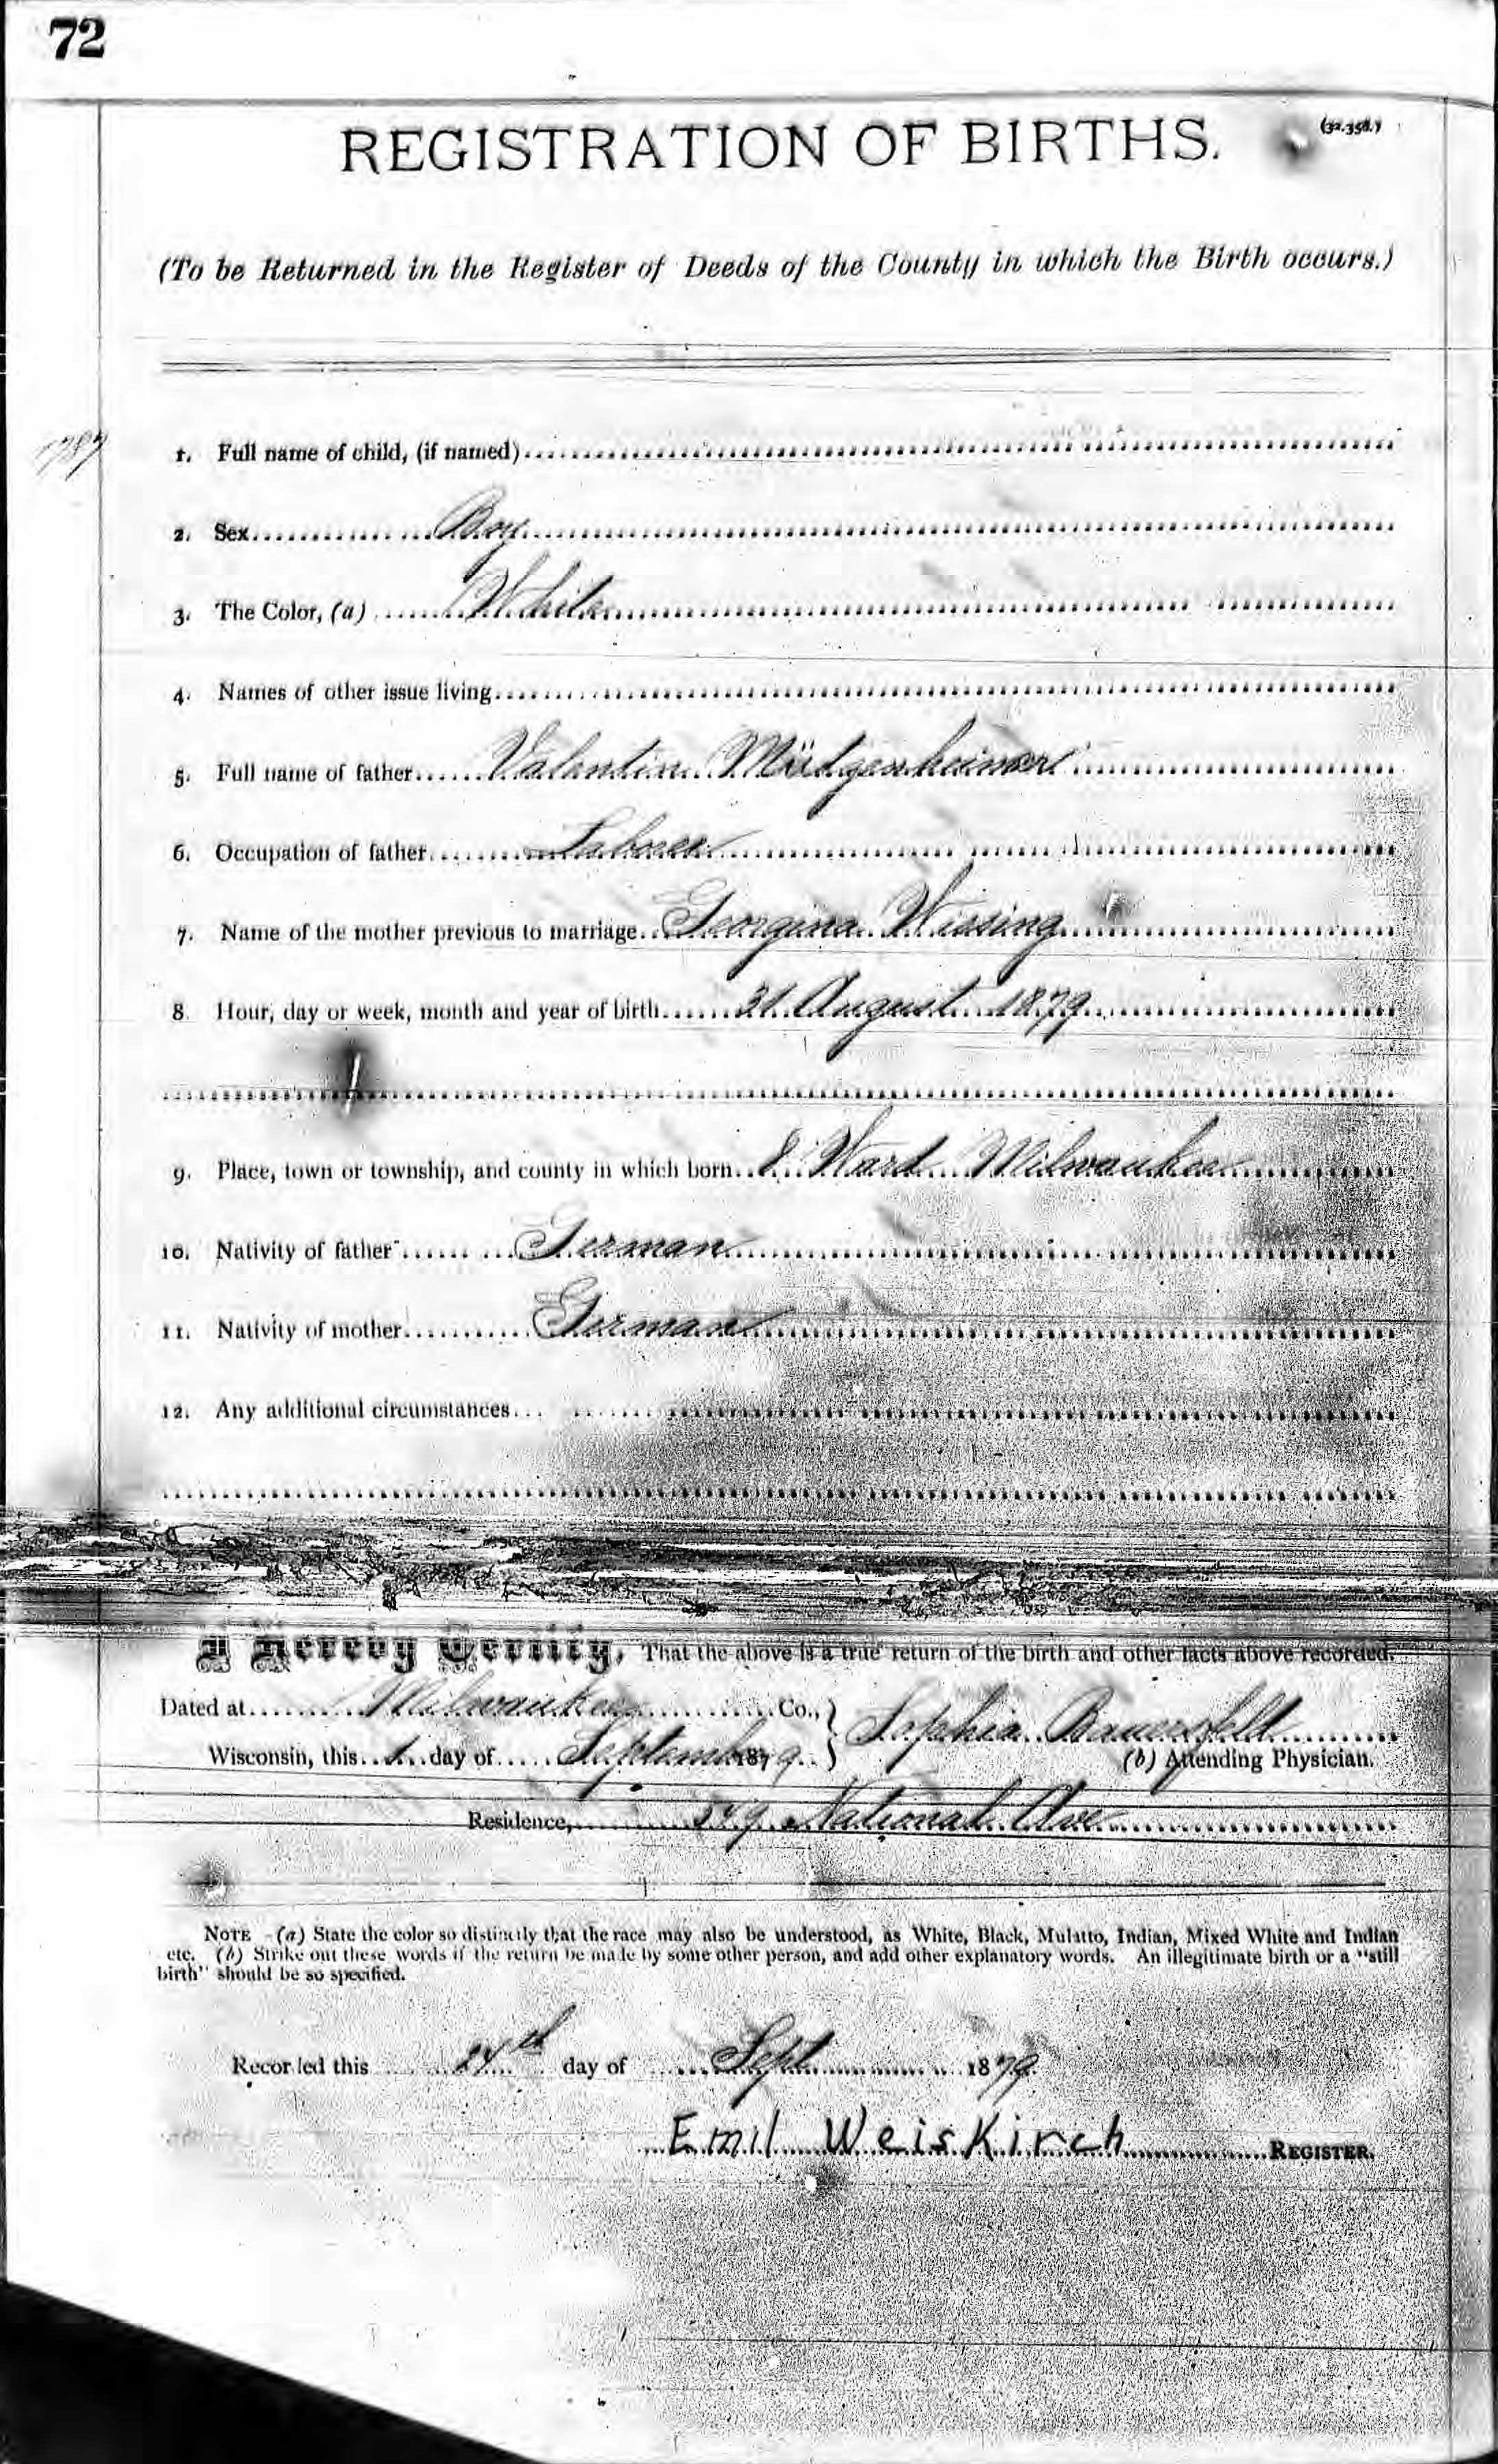 72
REGISTRATION OF BIRTHS.
(32.358.)
(To be Returned in the Register of Deeds of the County in which the Birth occurs.)
1787
1. Full name of child, (if named)
2. Sex Boy
3. The Color, (a) White
4. Names of other issue living
5. Full name of father Valentin Mütgenheimer
6. Occupation of father Laborer
7. Name of the mother previous to marriage Georgina Wissing
8 Hour, day or week, month and year of birth 31 August 1879
9. Place, town or township, and county in which born 8 Ward Milwaukee
10. Nativity of father German
11. Nativity of mother German
12. Any additional circumstances
I Hereby Certify, That the above is a true return of the birth and other facts above recorded.
Dated at Milwaukee Co., Sophia Bauersfeld
Wisconsin, this 1. day of September 1879. (b) Attending Physician.
Residence, 549 National Ave
NOTE - (a) State the color so distinctly that the race may also be understood, as White, Black, Mulatto, Indian, Mixed White and Indian
etc. (b) Strike out these words if the return be made by some other person, and add other explanatory words. An illegitimate birth or a "still
birth" should be so specified.
Recorded this 24th day of Sept 1879.
Emil WeisKirch REGISTER.